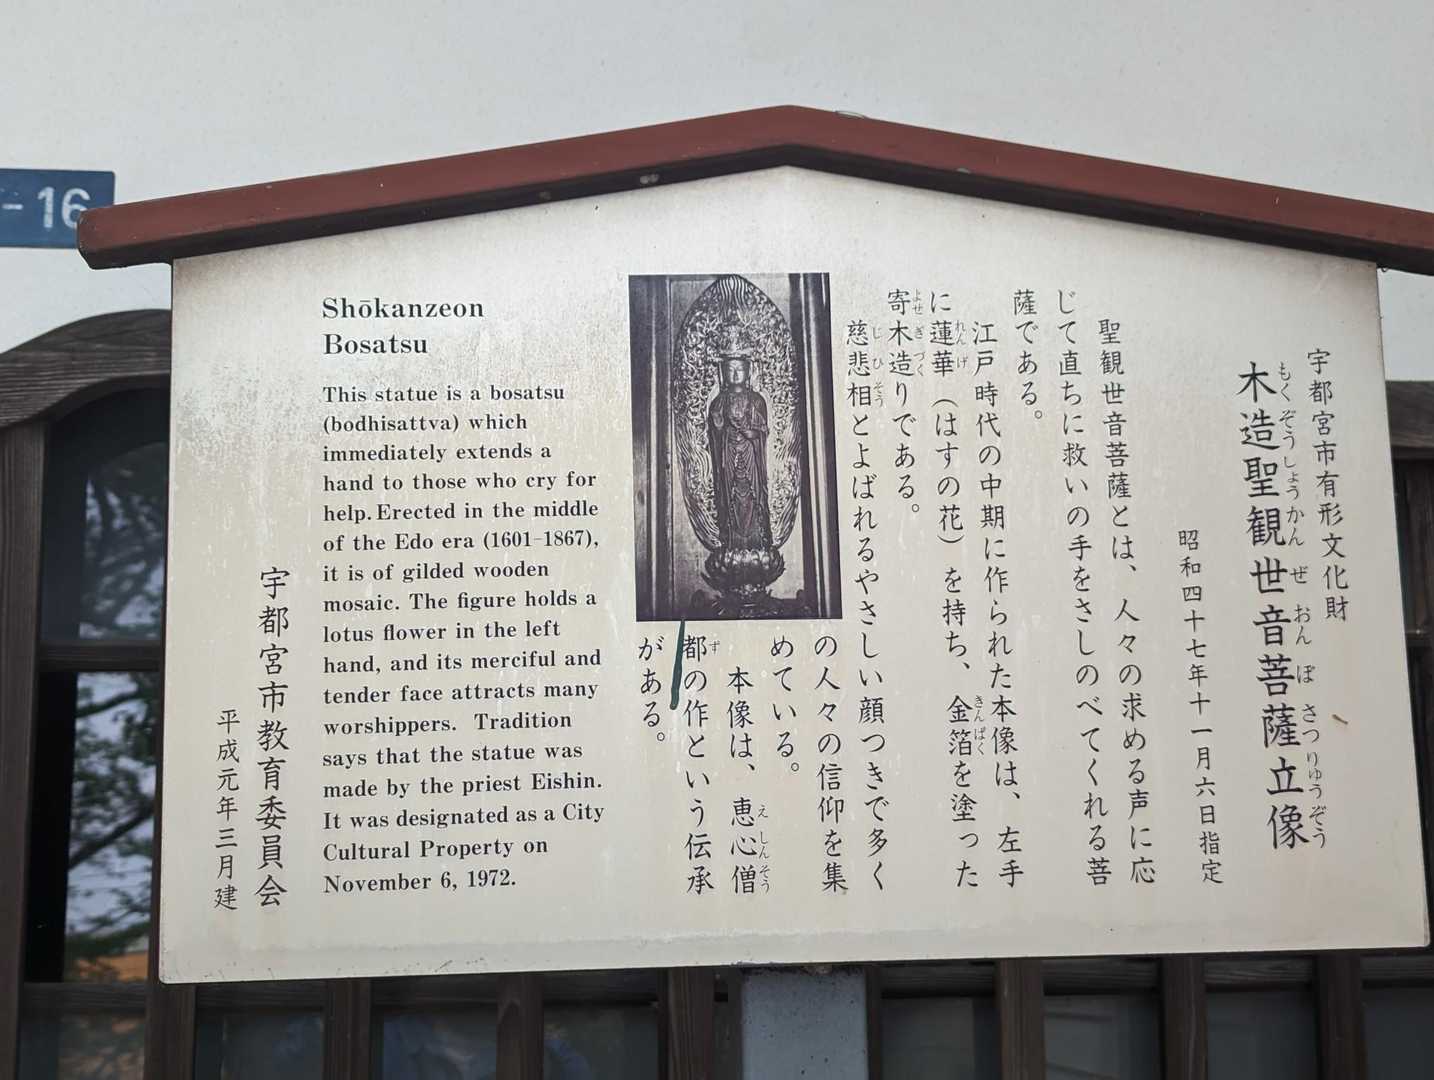 -16
宇都宮市有形文化財
木造聖観世音菩薩立像
もくぞうしょうかんぜおんぼさつりゅうぞう
昭和四十七年十一月六日指定
聖観世音菩薩とは、人々の求める声に応
じて直ちに救いの手をさしのべてくれる菩
薩である。
江戸時代の中期に作られた本像は、左手
に蓮華（はすの花）を持ち、金箔を塗った
れんげ
きんぱく
寄木造りである。
よせぎづく
慈悲相とよばれるやさしい顔つきで多く
じひそう
の人々の信仰を集
めている。
本像は、恵心僧
えしんそう
都の作という伝承
ず
がある。
Shōkanzeon
Bosatsu
This statue is a bosatsu
(bodhisattva) which
immediately extends a
hand to those who cry for
help. Erected in the middle
of the Edo era (1601-1867),
it is of gilded wooden
mosaic. The figure holds a
lotus flower in the left
hand, and its merciful and
tender face attracts many
worshippers. Tradition
says that the statue was
made by the priest Eishin.
It was designated as a City
Cultural Property on
November 6, 1972.
宇都宮市教育委員会
平成元年三月建